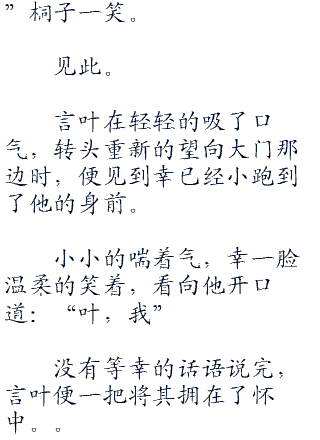 ”桐子一笑。
见此。
言叶在轻轻的吸了口
气，转头重新的望向大门那
边时，便见到幸已经小跑到
了他的身前。
小小的喘着气，幸一脸
温柔的笑着，看向他开口
道：“叶，我”
没有等幸的话语说完，
言叶便一把将其拥在了怀
中。。